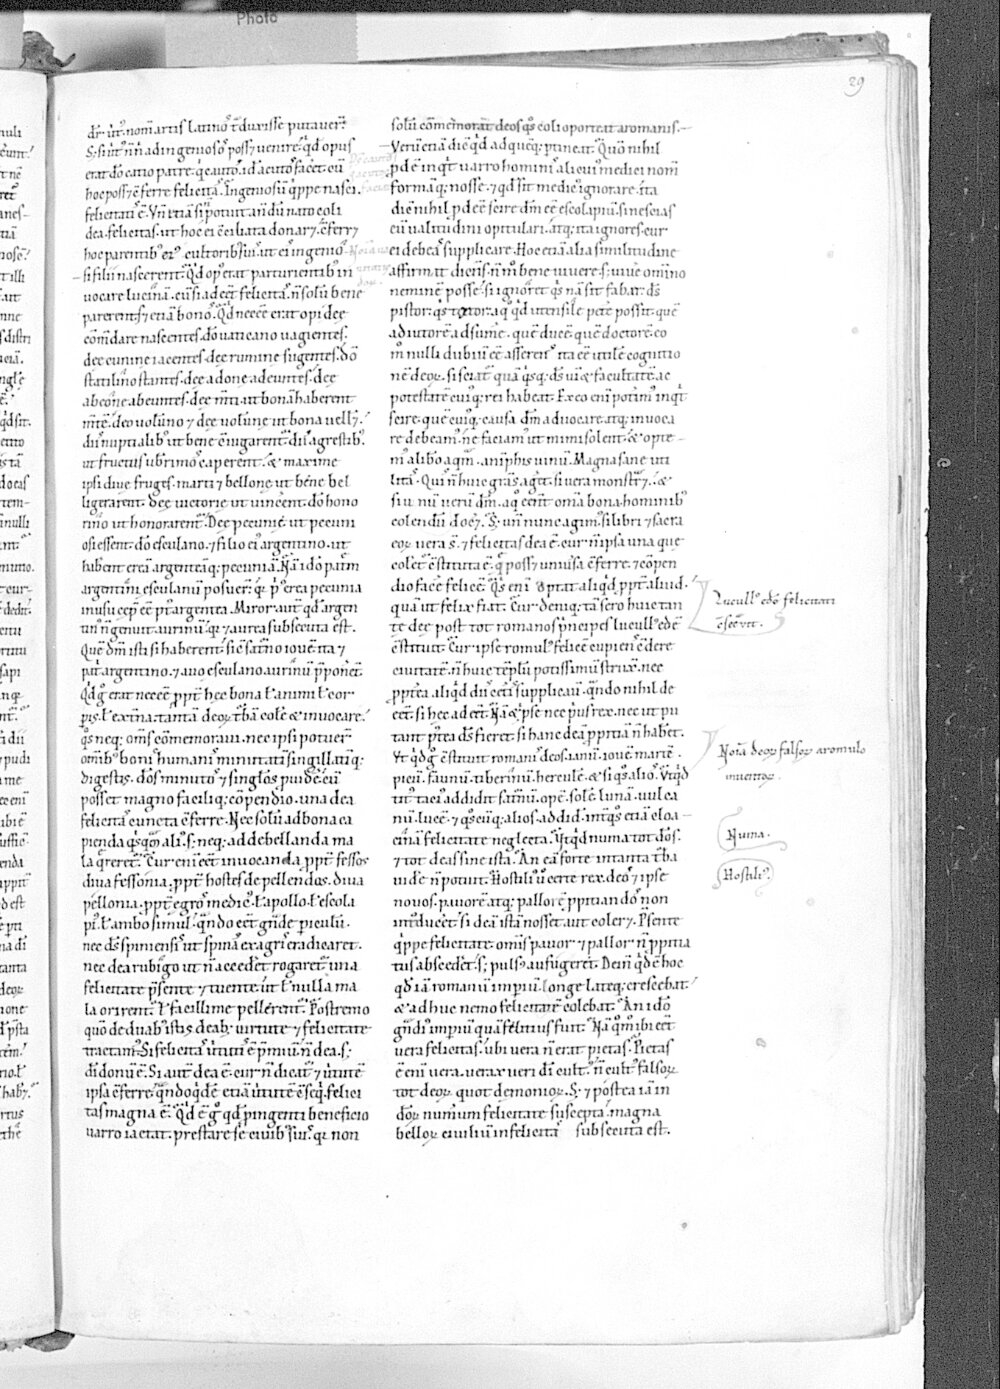 29
dr̄. ut̓. nom̄ artis latino᷒ t̄duxisse putaver̄.
S; si ut̓ n̄n ad ingenioso᷒ poss; venire. q̇d opus
erat dō catio patre. q̄ cauto᷒. id ē acuto᷒ facēt. cū
hoc poss; c̄ferre felicitas. Ingeniosū q̄ppe nasci.
felicitati᷒ ē. Vn̄ etiā si potuit an̄ dū nato coli
dea felicitas. ut hoc ei c̄ciliata donar;. c̄ferr;
hoc parentib᷒ ei᷒ cultorib᷒ suis. ut ei ingenio᷒
si filii nascerent̓. Q̇d op᷒ erat parturientib᷒ in
vocare lucinā. cū si adeēt felicitas. n̄ solū bene
parerent. s; etiā bono᷒. Q̇d neceē erat opi deę
cōmdare nascentes. dō vaticano vagientes.
deę cuninę iacentes. deę ruminę sugentes. dō
statilino stantes. deę adeonę adeuntes. deę
abeonę abeuntes. deę mn̄ti ut bonā haberent
mn̄tē. deo volūno ⁊ deę volūnę ut bona vell;.
diis nuptialib᷒ ut bene c̄iugarent̓. diis agrestib᷒.
ut fructus uberrimo᷒ caperent. & maximę
ipsi divę frugesę. marti ⁊ bellonę ut bene bel
ligerarent. deę victorię ut vincerent. dō hono
rino ut honorarent̓. Deę pecunię ut pecuni
osi essent. dō esculano. ⁊ filio ei᷒ argentino. ut
haberent ereā argenteāq; pecuniā. Nā idō patrē
argentini esculanū posuer̄. q̇ p᷒ erea pecunia
in usu cęp̄ eē p᷒t argentea. Miror aut̄ qd̄ argen
tin᷒ n̄ genuit aurinū. q̇ ⁊ aurea subsecuta est.
Quē dm̄ isti si haberent. sic sat̄no iovē. ita ⁊
pat̓ argentino. ⁊ avo esculano. aurinū p̄ponēt.
Q̇d ḡ erat neceē ppt̄ hęc bona ł animi ł cor
pis. ł ext̄na. tantā deoꝝ t̄bā colere & invocare.
q̇s neq; om̄s cōmemoravi. nec ipsi potuer̄
om̄ib᷒ bonis humanis minutati᷒ singillatīq;
digestis. do᷒s minuto᷒ ⁊ singlo᷒s puidē. cū
posset magno faciliq; cōpendio. una dea
felicitas cuncta c̄ferre. Nec solū ad bona ca
pienda q̇sq̇m alius. s; neq; ad depellenda ma
la q̄reret̓. Cur eni ēēt invocanda ppt̄ fessos
diva fessonia. ppt̄ hostes depellendos. diva
pellonia. ppt̄ ęgro᷒ medic᷒. ł apollo. ł escola
pi᷒. ł ambo simul. q̄ndo eēt grde periculū.
nec d̄s spiniensis ut spinas ex agris eradicaret.
nec dea rubigo ut n̄ accedēt rogaret̓. una
felicitate p̄sente ⁊ tuente. ut ł nulla ma
la orirent̓. ł facillime pellerent̓. Postremo
quō de duab᷒ istis deab; virtute ⁊ felicitate
tractam᷒. Si felicitas v̓tutis ē p̄miū. n̄ dea. s;
di donū ē. Si aut̄ dea ē. cur n̄ dicat̓ ⁊ v̓tutē
ipsa c̄ferre. q̄ndoq̇dē etiā v̓tutē c̄seq̇. felici
tas magna ē. Q̇d ē ḡ qd̄ p ingenti beneficio
varro iactat. prestare se civib᷒ suis. q̇ non
solū cōmemorat deos q̇s coli oporteat a romanis.
Verū etiā dic̄ q̇d ad quēq; ptineat. Quō nihil
pdeē inq̇t varro hominis alicui᷒ medici nom̄
formāq; nosse. ⁊ qd̄ sit medic᷒ ignorare. ita
dic̄ nihil pdeē scire dm̄ eē escolapiū. si nescias
eū valitudini opitulari. atq; ita ignores cur
ei debeas supplicare. Hoc etiā alia similitudine
affirmat dicens. n̄ m̄ bene vivere. s; vivē om̄ino
neminē posse. si ignoret q̇s nā sit faber. q̇s
pistor. q̇s tector. a q̇ q̇d utensile petē possit. quē
adiutorē adsumē. quē ducē. quē doctorē. eo
m̄ nulli dubiū eē asserens᷒ ita eē utilē cognitio
nē deoꝝ. si sciat̓ quā q̇sq; d̄s vi & facultatē. ac
potestatē cui᷒q; rei habeat. Ex eo eni poterim᷒ inq̇t
scire. quē cui᷒q; causa dm̄ advocare. atq; invoca
re debeam᷒. ne faciam᷒ ut mimi solent. & opte
m᷒ a libo aq̄m. a nimphis vinū. Magna sane uti
litas. Quis n̄ huic grās ageret. si vera monstrar;. &
si unū verū dm̄. a q̇ eent om̄ia bona. hominib᷒
colendū doc;. S; un̄ nunc agim᷒. si libri ⁊ sacra
eoꝝ vera s̄. ⁊ felicitas dea ē. cur n̄ ipsa una quę
coleret̓ c̄stituta ē. q̄ poss; ⁊ universa c̄ferre. ⁊ cōpen
dio facē felicē. Q̇s eni optat aliq̇d ppt̄ aliud.
quā ut felix fiat. Cur deniq; tā sero huic tan
tę deę post tot romanos p̄ncipes lucull᷒ ędē
c̄stituit. Cur ipse romul᷒ felicē cupiens c̄dere
civitatē. n̄ huic tēplū potissimū struxit. nec
ppt̄ea aliq̇d diis cet̄is supplicavit. q̄ndo nihil de
eēt. si hęc adeēt. Nā & ipse nec p᷒us rex. nec ut pu
tant p᷒tea d̄s fieret. si hanc deā ppitiā n̄ haberet.
Vt q̇d ḡ c̄stituit romanis deos. ianū. iovē martē.
picū. faunū. tiberinū. herculē. & si q̇s alio᷒. Vt q̇d
tit᷒ taci᷒ addidit sat̄nū. opē. solē. lunā. vulca
nū. lucē. ⁊ q̇scūq; alios addid. int̄ q̇s etiā cloa
cinā felicitate neglecta. Vt q̇d numa tot do᷒s.
⁊ tot deas sine ista. An eā forte in tanta t̄ba
vidē n̄ potuit. Hostili᷒ v̓ certe rex deo᷒ ⁊ ipse
novos pavorē atq; pallorē ppitiando᷒ non
int̄duceret. si deā istā nosset. aut coler;. P̄sente
q̇ppe felicitate. om̄is pavor ⁊ pallor n̄ ppitia
tus abscederet. s; puls᷒ aufugeret. Dein̄ q̇d ē hoc
qd̄ iā romanū impiū longe lateq; crescebat
& adhuc nemo felicitatē colebat. An idō
grdi᷒ impiū quā felicius fuit. Nā q̇m̄ ibi eēt
vera felicitas. ubi vera n̄ erat pietas. Pietas
ē eni vera. verax veri di cult᷒. n̄ cult᷒ falsoꝝ
tot deoꝝ. quot demonioꝝ. S; ⁊ postea iā in
do᷒ꝝ numerum felicitate suscepta. magna
belloꝝ civiliū infelicitas subsecuta est.
Lucull᷒ ędē felicitati
c̄secrvit.
Noīa deoꝝ falsoꝝ a romulo
inventoꝝ.
Numa.
Hostili᷒.
Photo